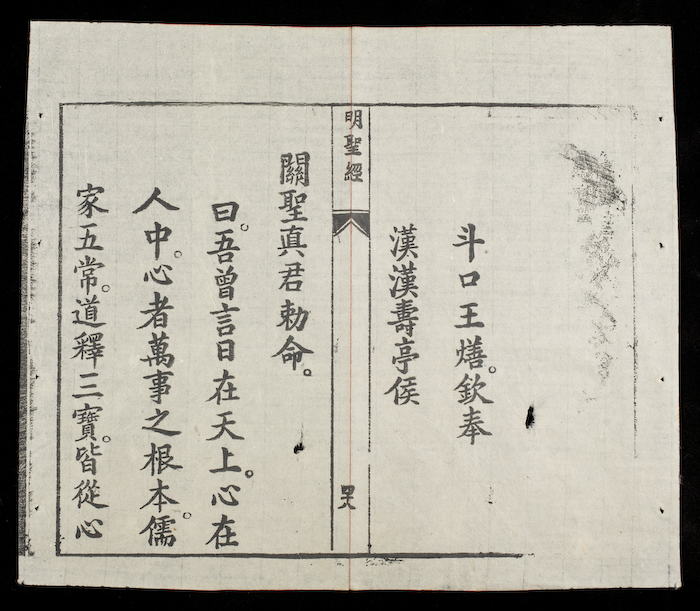 斗口王燌。欽奉
漢漢壽亭侯
明聖經
四八
關聖真君勅命。
曰。吾曾言日在天上。心在
人中。心者萬事之根本。儒
家五常。道釋三寶。皆從心